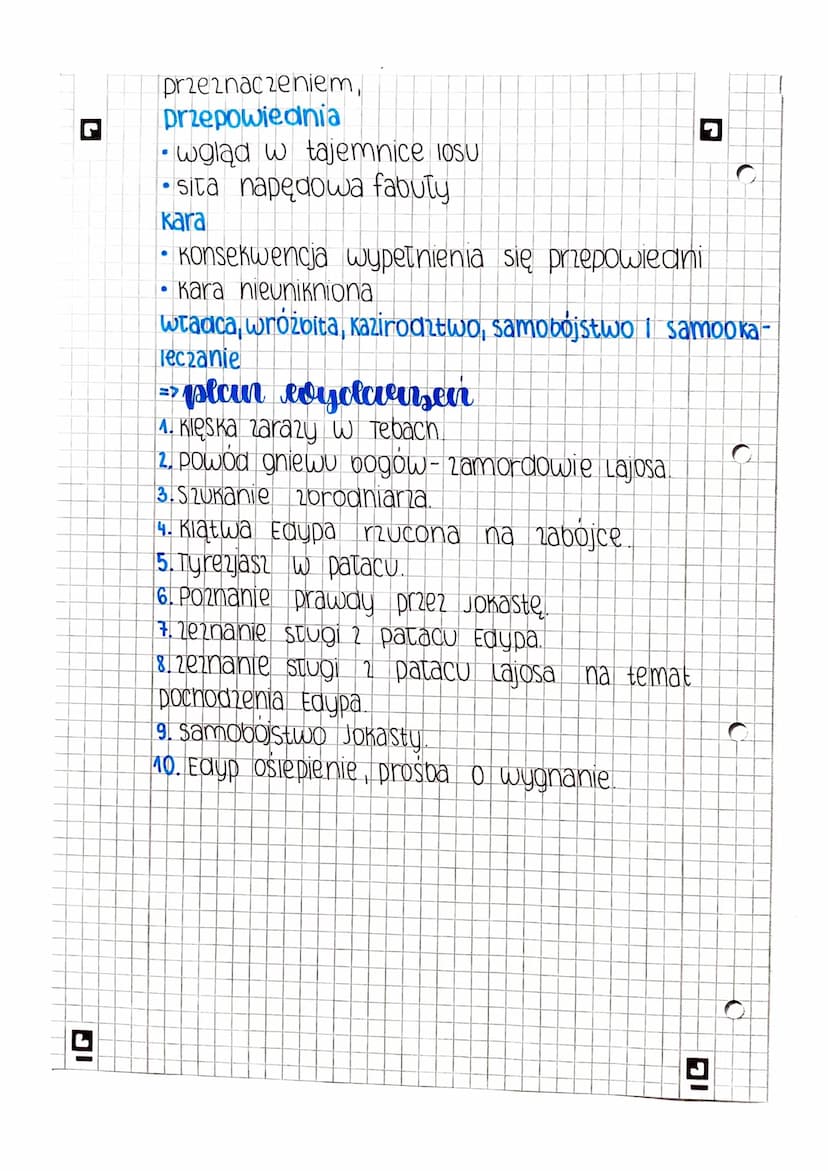 przeznaczeniem,
przepowiednia
• wgląd w tajemnice losu
• siła napędowa fabuły
kara
• konsekwencja wypełnienia się przepowiedni
• kara nieunikniona
władca, wróżbita, kazirodztwo, samobójstwo i samooka-
leczanie
=> plan wydarzeń
1. Klęska zarazy w Tebach.
2. powód gniewu bogów - zamordowie Lajosa.
3. Szukanie zbrodniarza.
4. Klątwa Edypa rzucona na zabójcę.
5. Tyrezjasz w pałacu.
6. Poznanie prawdy przez Jokastę.
7. zeznanie sługi z pałacu Edypa.
8. zeznanie sługi z pałacu Lajosa na temat
pochodzenia Edypa.
9. Samobójstwo Jokasty.
10. Edyp oślepienie, prośba o wygnanie.